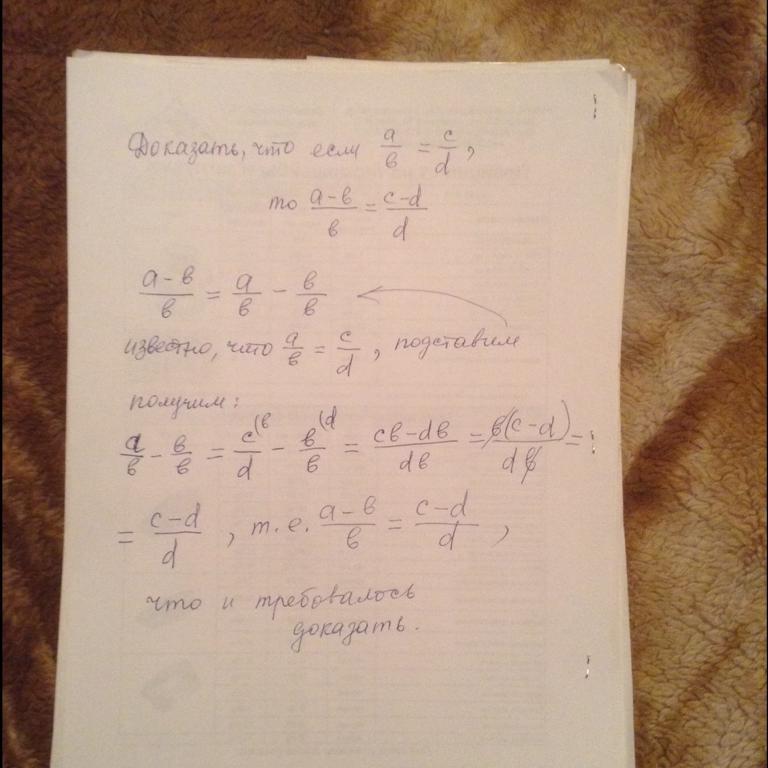 Доказать, что если a/в = c/d,
то (a-в)/в = (c-d)/d
(a-в)/в = a/в - в/в
известно, что a/в = c/d, подставим
получим:
a/в - в/в = c(в/d - в(d/в = (cв-dв)/dв = в(c-d)/dв =
= (c-d)/d, т.е. (a-в)/в = (c-d)/d,
что и требовалось
доказать.